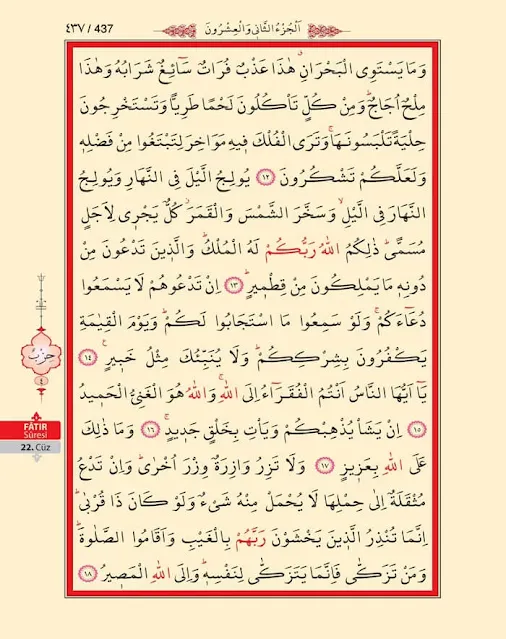 ٤٣٧ / 437
اَلْجُزْءُ الثَّانِي وَالْعِشْرُونَ
وَمَا يَسْتَوِي الْبَحْرَانِۗ هٰذَا عَذْبٌ فُرَاتٌ سَٓائِغٌ شَرَابُهُ وَهٰذَا
مِلْحٌ اُجَاجٌۜ وَمِنْ كُلٍّ تَأْكُلُونَ لَحْمًا طَرِيًّا وَتَسْتَخْرِجُونَ
حِلْيَةً تَلْبَسُونَهَاۚ وَتَرَى الْفُلْكَ فِيهِ مَوَاخِرَ لِتَبْتَغُوا مِنْ فَضْلِهِ
وَلَعَلَّكُمْ تَشْكُرُونَ ١٢ يُولِجُ الَّيْلَ فِي النَّهَارِ وَيُولِجُ
النَّهَارَ فِي الَّيْلِۙ وَسَخَّرَ الشَّمْسَ وَالْقَمَرَۘ كُلٌّ يَجْرِي لِاَجَلٍ
مُسَمًّىۜ ذٰلِكُمُ اللّٰهُ رَبُّكُمْ لَهُ الْمُلْكُۜ وَالَّذِينَ تَدْعُونَ مِنْ
دُونِهِ مَا يَمْلِكُونَ مِنْ قِطْمِيرٍۜ ١٣ اِنْ تَدْعُوهُمْ لَا يَسْمَعُوا
دُعَٓاءَكُمْۚ وَلَوْ سَمِعُوا مَا اسْتَجَابُوا لَكُمْۜ وَيَوْمَ الْقِيٰمَةِ
يَكْفُرُونَ بِشِرْكِكُمْۜ وَلَا يُنَبِّئُكَ مِثْلُ خَبِيرٍ۟ ١٤
يَٓا اَيُّهَا النَّاسُ اَنْتُمُ الْفُقَرَٓاءُ اِلَى اللّٰهِۚ وَاللّٰهُ هُوَ الْغَنِيُّ الْحَمِيدُ
١٥ اِنْ يَشَأْ يُذْهِبْكُمْ وَيَأْتِ بِخَلْقٍ جَدِيدٍۚ ١٦ وَمَا ذٰلِكَ
عَلَى اللّٰهِ بِعَزِيزٍ ١٧ وَلَا تَزِرُ وَازِرَةٌ وِزْرَ اُخْرٰىۜ وَاِنْ تَدْعُ
مُثْقَلَةٌ اِلٰى حِمْلِهَا لَا يُحْمَلْ مِنْهُ شَيْءٌ وَلَوْ كَانَ ذَا قُرْبٰىۜ
اِنَّمَا تُنْذِرُ الَّذِينَ يَخْشَوْنَ رَبَّهُمْ بِالْغَيْبِ وَاَقَامُوا الصَّلٰوةَۜ
وَمَنْ تَزَكّٰى فَاِنَّمَا يَتَزَكّٰى لِنَفْسِهِۜ وَاِلَى اللّٰهِ الْمَصِيرُ ١٨
حِزْبٌ
٤
FÂTIR
Sûresi
22. Cüz